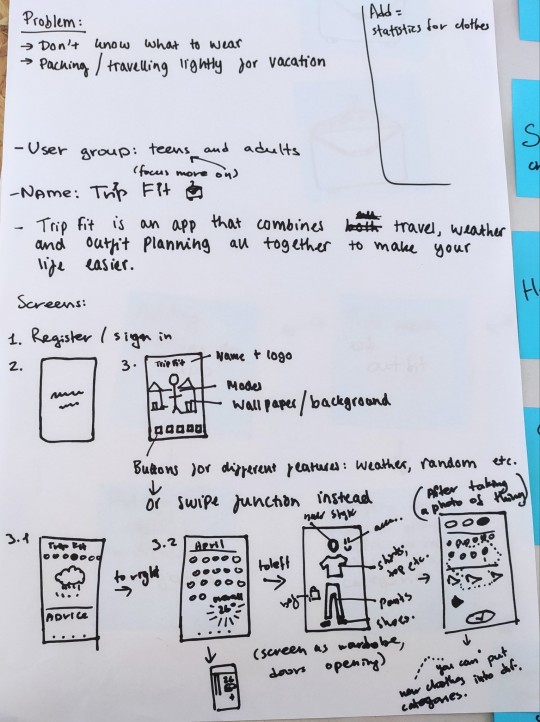 Problem:
→ Don't know what to wear
→ Packing / travelling lightly for vacation
Add =
statistics for clothes
- User group: teens and adults
(focus more on)
- Name: Trip Fit
- Trip Fit is an app that combines travel, weather
and outfit planning all together to make your
life easier.
Screens:
1. Register / sign in
2.
3.
Trip Fit
Name + logo
Model
Wallpaper / background
Buttons for different features: weather, random etc.
or swipe function instead
(After taking
a photo of thing)
3.1
Trip Fit
Advice
to right
3.2
April
overall
26°
to left
hair style
acc..
shirts,
top etc.
pants
shoes.
(screen as wardrobe,
doors opening)
26
you can put
new clothes into dif.
categories.
S
H